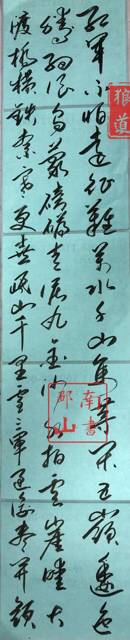 紅軍不怕遠征難萬水千山隻等閒五嶺逶迤
騰細浪烏蒙磅礴走泥丸金沙水拍雲崖暖大
渡橋橫鐵索寒更喜岷山千里雪三軍過後盡開顏
狼道
南書
郡山